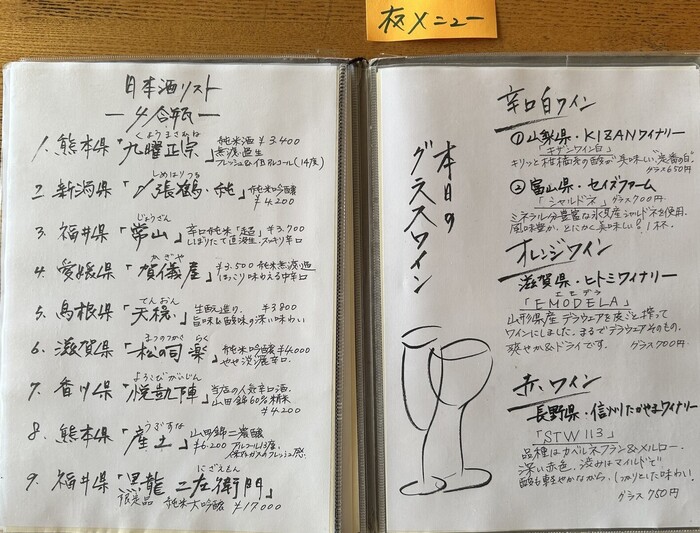 夜メニュー
日本酒リスト
―4合瓶―
くようまさむね
1. 熊本県「九曜正宗」純米酒 ¥3,400
無濾過生
フレッシュ&低アルコール(14度)
しめはりつる
2. 新潟県「〆張鶴・純」純米吟醸
¥4,200
じょうざん
3. 福井県「常山」辛口純米「超」¥3,700
しぼりたて直汲生。スッキリ辛口
かぎや
4. 愛媛県「賀儀屋」¥3,500 純米無濾過
ほっこり味わえる中辛口
てんおん
5. 島根県「天穏」生酛造り。¥3800
旨味&酸味の深い味わい
まつのつかさ らく
6. 滋賀県「松の司 楽」純米吟醸 ¥4,000
やや淡麗辛口
よろこびがいじん
7. 香川県「悦凱陣」当店の人気辛口酒。
山田錦60%精米
¥4,200
うぶすな
8. 熊本県「産土」山田錦二農醸
¥6,200 アルコール13度、
フレッシュ感。
にざえもん
9. 福井県「黒龍 二左衛門」
限定品 純米大吟醸 ¥17,000
本日の
グラスワイン
辛口白ワイン
①山梨県・KIZANワイナリー
「キザンワイン白」
キリッと柑橘系の酸が美味しい"定番の白"
グラス650円
②富山県・セイズファーム
「シャルドネ」グラス900円
ミネラル分豊富な氷見産シャルドネを使用。
風味豊か、とにかく美味しい!1杯。
オレンジワイン
滋賀県・ヒトミワイナリー
エモデラ
「EMODELA」
山形県産デラウェアを皮ごと搾って
ワインにしました。まるでデラウェアそのもの。
爽やか&ドライです。 グラス700円
赤ワイン
長野県・信州たかやまワイナリー
「STW113」
品種はカベルネフラン&メルロー。
深い赤色。渋みはマイルドで
酸も軽やかながら、しっかりとした味わい!
グラス750円